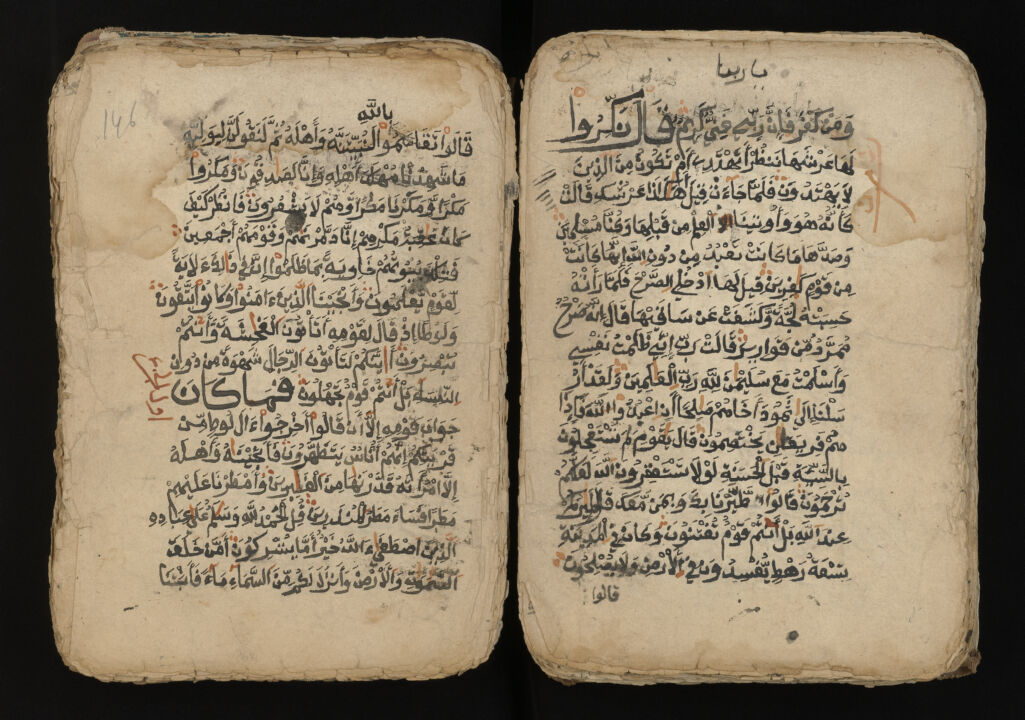 يا ربنا
وَمَن كَفَرَ فَإِنَّ رَبِّي غَنِيٌّ كَرِيمٌ قَالَ نَكِّرُوا
لَهَا عَرْشَهَا نَنظُرْ أَتَهْتَدِي أَمْ تَكُونُ مِنَ الذِينَ
لَا يَهْتَدُونَ فَلَمَّا جَاءَتْ قِيلَ أَهَٰكَذَا عَرْشُكِ قَالَتْ
كَأَنَّهُ هُوَ وَأُوتِينَا الْعِلْمَ مِن قَبْلِهَا وَكُنَّا مُسْلِمِينَ
وَصَدَّهَا مَا كَانَت تَّعْبُدُ مِن دُونِ اللَّهِ إِنَّهَا كَانَتْ
مِن قَوْمٍ كَٰفِرِينَ قِيلَ لَهَا ادْخُلِي الصَّرْحَ فَلَمَّا رَأَتْهُ
حَسِبَتْهُ لُجَّةً وَكَشَفَتْ عَن سَاقَيْهَا قَالَ إِنَّهُ صَرْحٌ
مُّمَرَّدٌ مِّن قَوَارِيرَ قَالَتْ رَبِّ إِنِّي ظَلَمْتُ نَفْسِي
وَأَسْلَمْتُ مَعَ سُلَيْمَٰنَ لِلَّهِ رَبِّ الْعَٰلَمِينَ وَلَقَدْ أَرْ
سَلْنَا إِلَىٰ ثَمُودَ أَخَاهُمْ صَٰلِحًا أَنِ اعْبُدُوا اللَّهَ فَإِذَا
هُمْ فَرِيقَٰنِ يَخْتَصِمُونَ قَالَ يَٰقَوْمِ لِمَ تَسْتَعْجِلُونَ
بِالسَّيِّئَةِ قَبْلَ الْحَسَنَةِ لَوْلَا تَسْتَغْفِرُونَ اللَّهَ لَعَلَّكُمْ
تُرْحَمُونَ قَالُوا اطَّيَّرْنَا بِكَ وَبِمَن مَّعَكَ قَالَ طَٰئِرُكُمْ
عِندَ اللَّهِ بَلْ أَنتُمْ قَوْمٌ تُفْتَنُونَ وَكَانَ فِي الْمَدِينَةِ
تِسْعَةُ رَهْطٍ يُفْسِدُونَ فِي الْأَرْضِ وَلَا يُصْلِحُونَ
قالوا
146
بِاللَّهِ
قَالُوا تَقَاسَمُوا لَنُبَيِّتَنَّهُ وَأَهْلَهُ ثُمَّ لَنَقُولَنَّ لِوَلِيِّهِ
مَا شَهِدْنَا مَهْلَكَ أَهْلِهِ وَإِنَّا لَصَٰدِقُونَ وَمَكَرُوا
مَكْرًا وَمَكَرْنَا مَكْرًا وَهُمْ لَا يَشْعُرُونَ فَانظُرْ كَيْفَ
كَانَ عَٰقِبَةُ مَكْرِهِمْ إِنَّا دَمَّرْنَٰهُمْ وَقَوْمَهُمْ أَجْمَعِينَ
فَتِلْكَ بُيُوتُهُمْ خَاوِيَةً بِمَا ظَلَمُوا إِنَّ فِي ذَٰلِكَ لَآيَةً
لِّقَوْمٍ يَعْلَمُونَ وَأَنجَيْنَا الَّذِينَ ءَامَنُوا وَكَانُوا يَتَّقُونَ
وَلُوطًا إِذْ قَالَ لِقَوْمِهِ أَتَأْتُونَ الْفَٰحِشَةَ وَأَنتُمْ
تُبْصِرُونَ أَئِنَّكُمْ لَتَأْتُونَ الرِّجَالَ شَهْوَةً مِّن دُونِ
النِّسَاءِ بَلْ أَنتُمْ قَوْمٌ تَجْهَلُونَ فَمَا كَانَ
جَوَابَ قَوْمِهِ إِلَّا أَن قَالُوا أَخْرِجُوا ءَالَ لُوطٍ مِّن
قَرْيَتِكُمْ إِنَّهُمْ أُنَاسٌ يَتَطَهَّرُونَ فَأَنجَيْنَٰهُ وَأَهْلَهُ
إِلَّا امْرَأَتَهُ قَدَّرْنَٰهَا مِنَ الْغَٰبِرِينَ وَأَمْطَرْنَا عَلَيْهِم
مَّطَرًا فَسَاءَ مَطَرُ الْمُنذَرِينَ قُلِ الْحَمْدُ لِلَّهِ وَسَلَٰمٌ عَلَىٰ عِبَادِهِ
الَّذِينَ اصْطَفَىٰ ءَاللَّهُ خَيْرٌ أَمَّا يُشْرِكُونَ أَمَّنْ خَلَقَ
السَّمَٰوَٰتِ وَالْأَرْضَ وَأَنزَلَ لَكُم مِّنَ السَّمَاءِ مَاءً فَأَنبَتْنَا